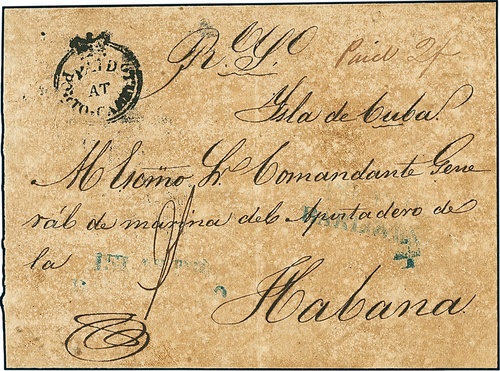 PAID
AT
R.l S.o
Paid 2/
Ysla de Cuba.
Al Escmo Sr. Comandante Gene
rál de marina del Apostadero de
la
Habana.